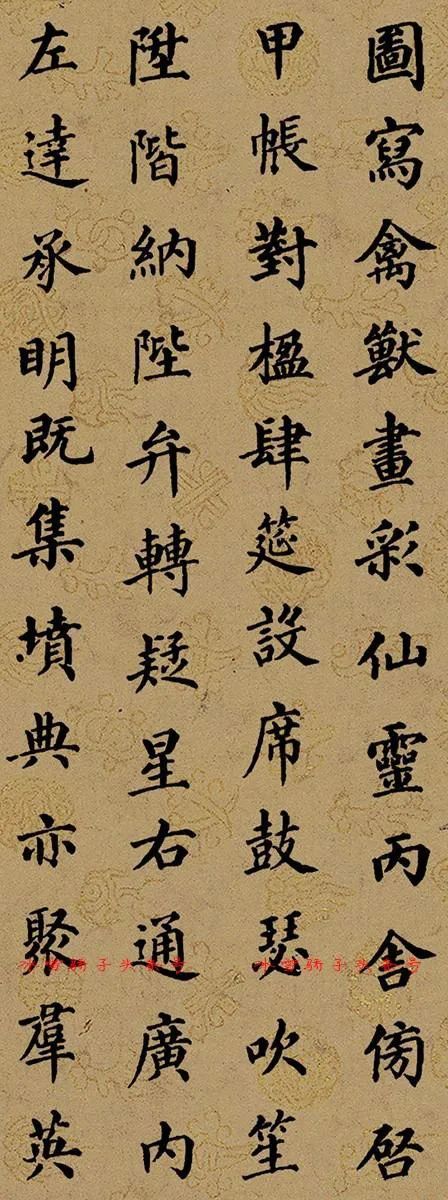 圖寫禽獸畫彩仙靈丙舍傍啓
甲帳對楹肆筵設席鼓瑟吹笙
陞階納陛弁轉疑星右通廣內
左達承明既集墳典亦聚羣英